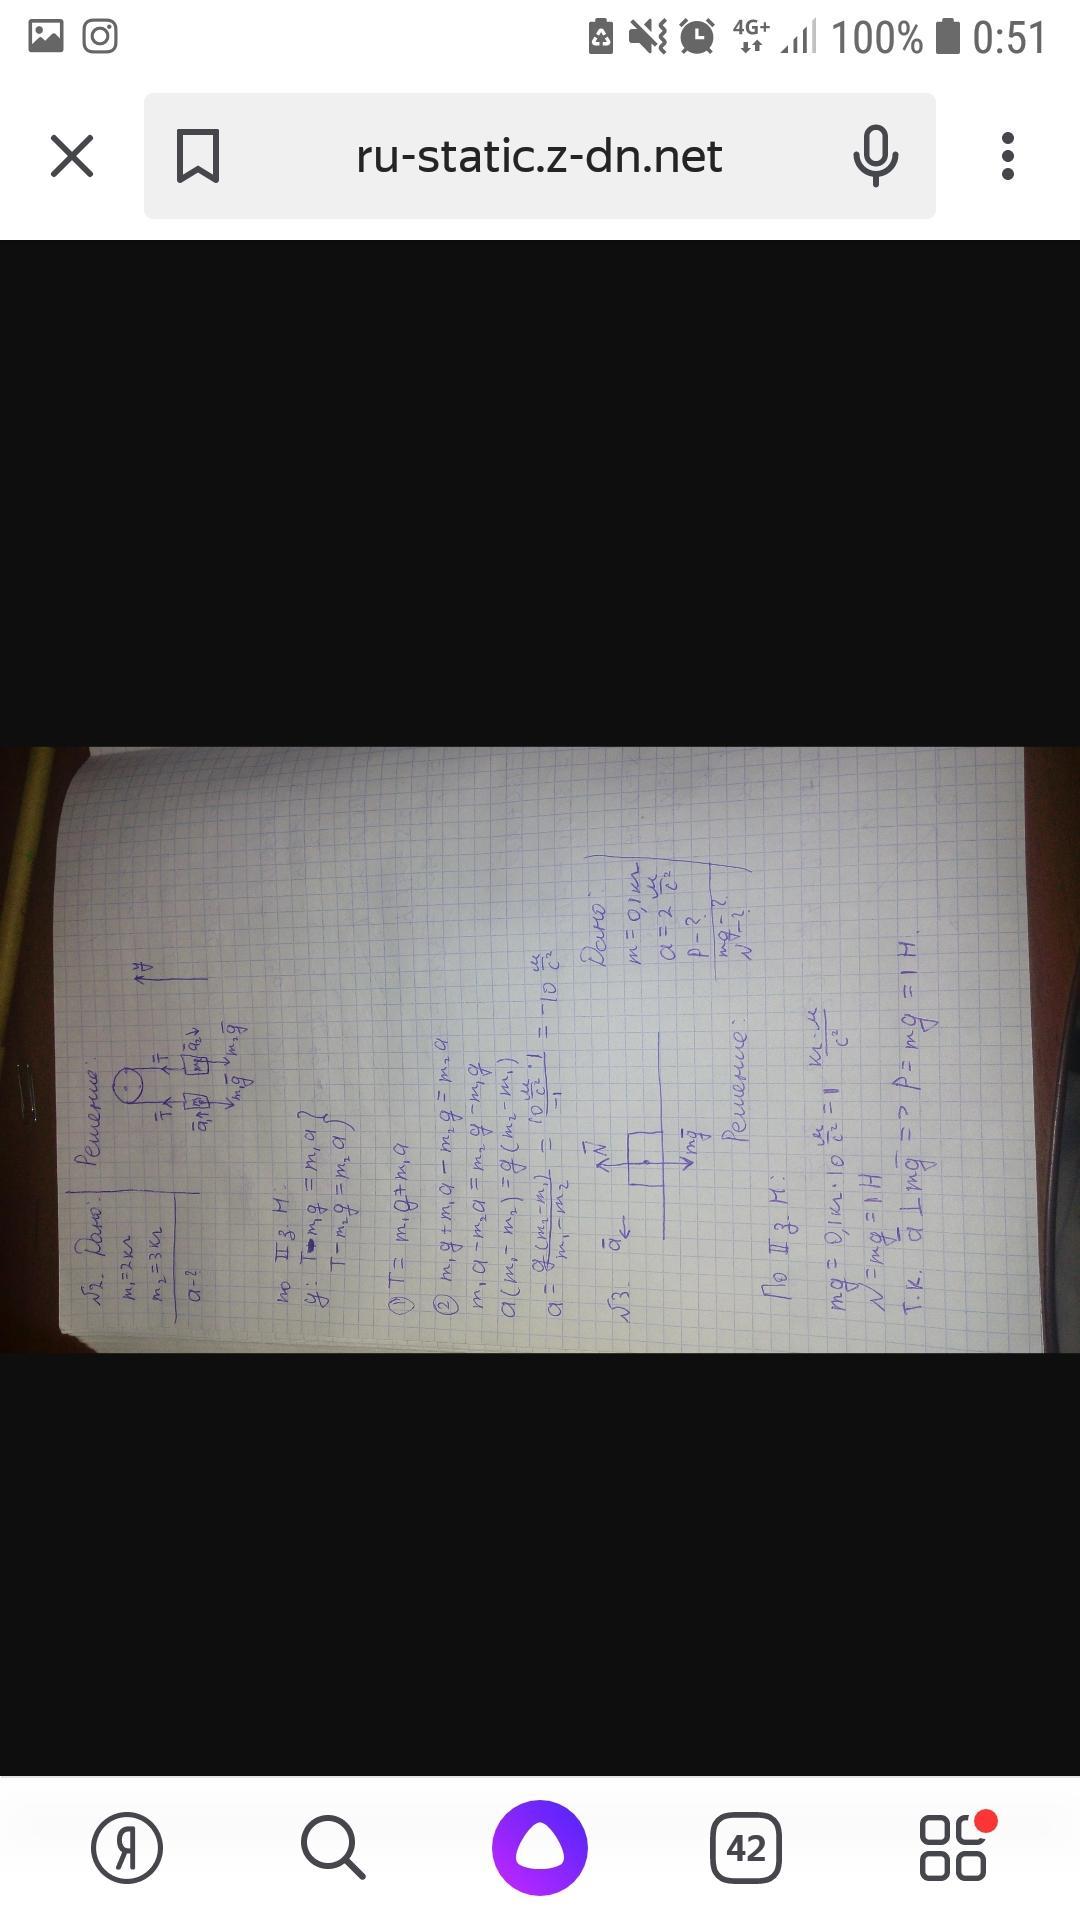 4G+ 100% 0:51
ru-static.z-dn.net
√2. Дано: Решение:
m₁=2кг
m₂=3кг
a-?
y
T̄ T̄
ā₁ m₂ ā₂
m₁ḡ m₂ḡ
по II з. Н:
y: T-m₁g=m₁a }
T-m₂g=m₂a }
① T= m₁g+m₁a
② m₁g+m₁a-m₂g=m₂a
m₁a-m₂a=m₂g-m₁g
a(m₁-m₂)=g(m₂-m₁)
a= g(m₂-m₁)/(m₁-m₂) = 10 м/с² · 1/-1 = -10 м/с²
√3.
ā N̄
mḡ
Дано:
m=0,1кг
a=2 м/с²
P-?
mg-?
N-?
Решение:
По II з. Н:
mg=0,1кг·10 м/с²=1 кг·м/с²
N=mg=1Н
Т.к. ā⊥mḡ => P=mg=1Н.
Я 42